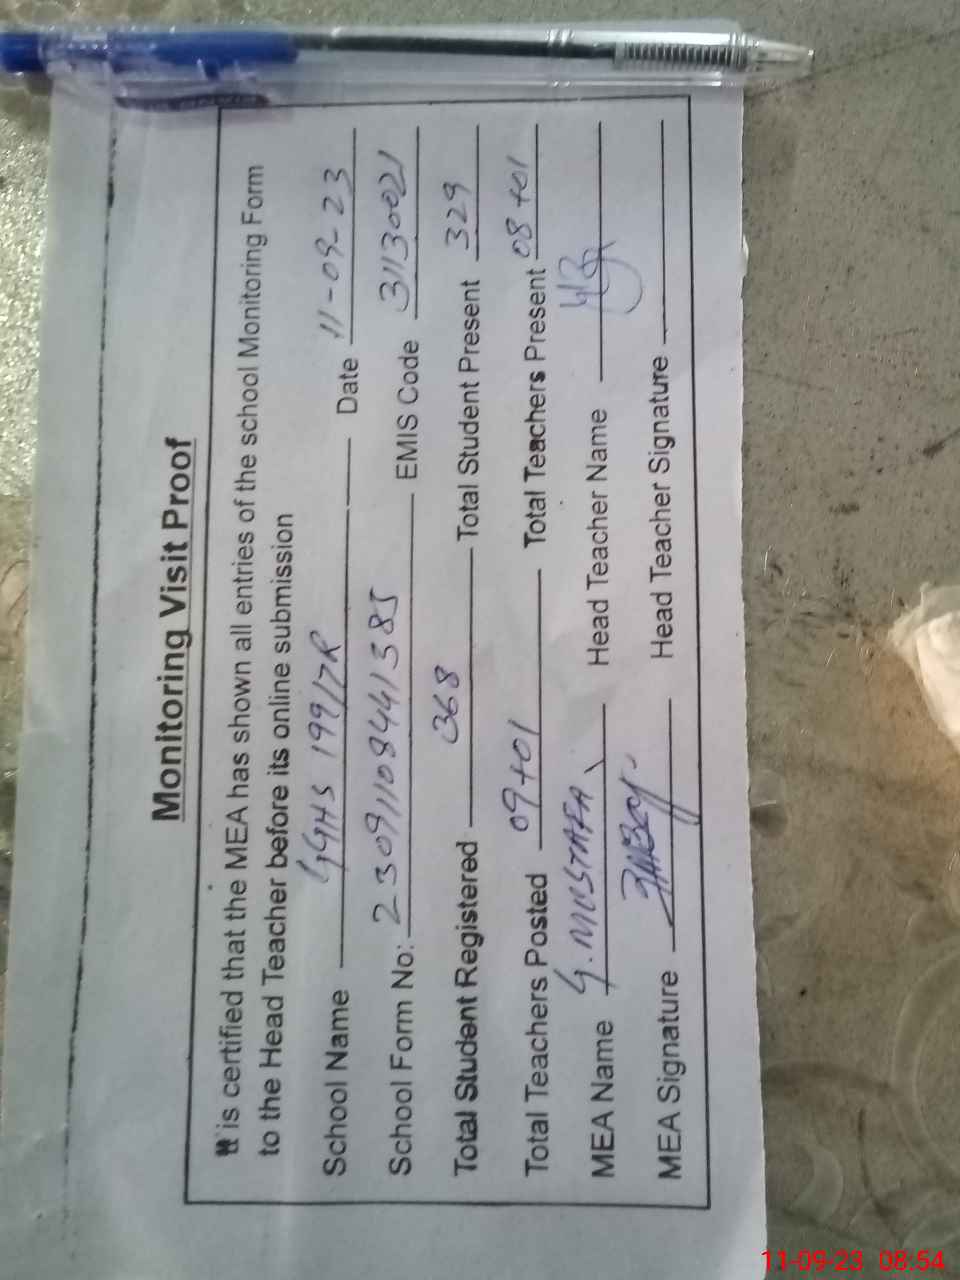 Monitoring Visit Proof
It is certified that the MEA has shown all entries of the school Monitoring Form
to the Head Teacher before its online submission
School Name GGHS 199/7R Date 11-09-23
School Form No: 23091108441385 EMIS Code 31130021
Total Student Registered 368 Total Student Present 329
Total Teachers Posted 09+01 Total Teachers Present 08+01
MEA Name G.MUSTAFA Head Teacher Name
MEA Signature Head Teacher Signature
11-09-23 08:54